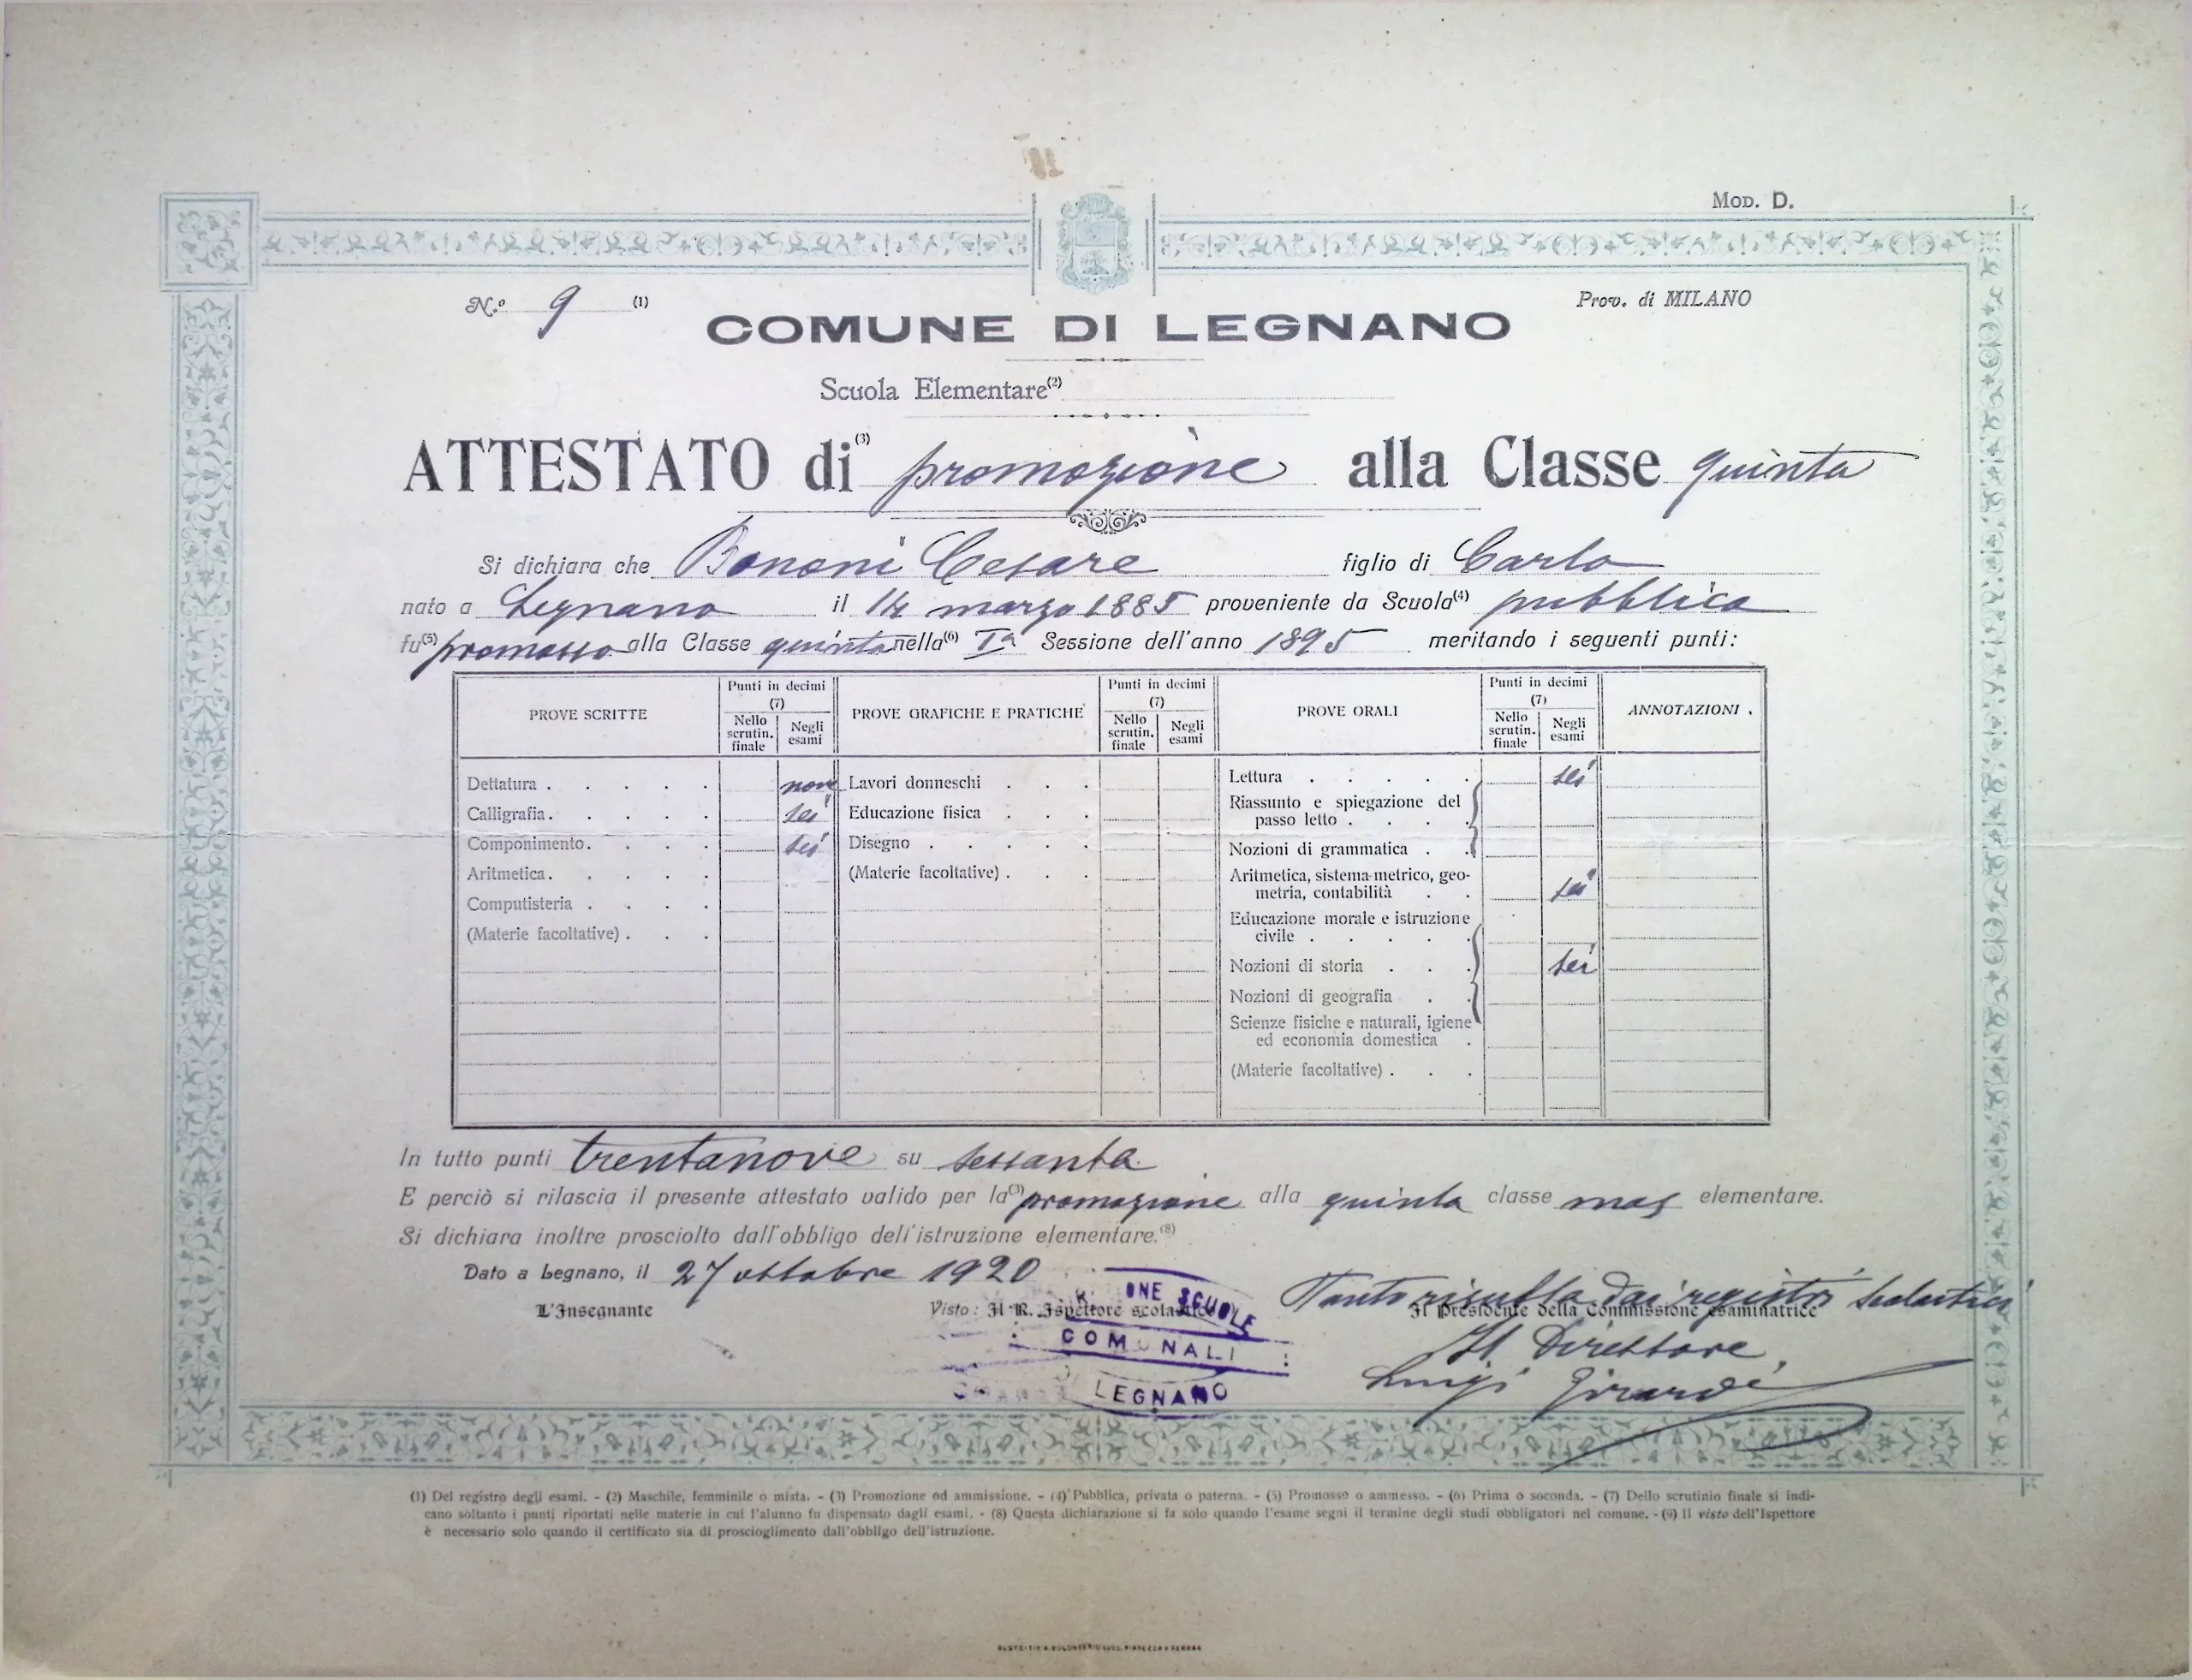 Mod. D.
N.º 9 (1)
Prov. di MILANO
COMUNE DI LEGNANO
Scuola Elementare(2)
ATTESTATO di(3) promozione alla Classe quinta
Si dichiara che Bononi Cesare figlio di Carlo
nato a Legnano il 14 marzo 1885 proveniente da Scuola(4) pubblica
fu(5) promosso alla Classe quinta nella(6) Iª Sessione dell'anno 1895 meritando i seguenti punti:
PROVE SCRITTE
Punti in decimi
(7)
Nello scrutin. finale
Negli esami
PROVE GRAFICHE E PRATICHE
Punti in decimi
(7)
Nello scrutin. finale
Negli esami
PROVE ORALI
Punti in decimi
(7)
Nello scrutin. finale
Negli esami
ANNOTAZIONI.
Dettatura . . . . . nove
Calligrafia. . . . . sei
Componimento. . . . sei
Aritmetica. . . . .
Computisteria . . . .
(Materie facoltative) . . .
Lavori donneschi . . .
Educazione fisica . . .
Disegno . . . . .
(Materie facoltative) . . .
Lettura . . . . . sei
Riassunto e spiegazione del
passo letto . . . .
Nozioni di grammatica . .
Aritmetica, sistema metrico, geo-
metria, contabilità . . sei
Educazione morale e istruzione
civile . . . . .
Nozioni di storia . . . sei
Nozioni di geografia . .
Scienze fisiche e naturali, igiene
ed economia domestica .
(Materie facoltative) . . .
In tutto punti trentanove su sessanta
E perciò si rilascia il presente attestato valido per la(3) promozione alla quinta classe mas elementare.
Si dichiara inoltre prosciolto dall'obbligo dell'istruzione elementare.(8)
Dato a Legnano, il 27 ottobre 1920
Tanto risulta dai registri scolastici
L'Insegnante
Visto: Il R. Ispettore scolastico
Il Presidente della Commissione esaminatrice
ONE SCUOLE
COMUNALI
LEGNANO
Il Direttore
Luigi Girardi
(1) Del registro degli esami. - (2) Maschile, femminile o mista. - (3) Promozione od ammissione. - (4) Pubblica, privata o paterna. - (5) Promosso o ammesso. - (6) Prima o seconda. - (7) Dello scrutinio finale si indi-
cano soltanto i punti riportati nelle materie in cui l'alunno fu dispensato dagli esami. - (8) Questa dichiarazione si fa solo quando l'esame segni il termine degli studi obbligatori nel comune. - (9) Il visto dell'Ispettore
è necessario solo quando il certificato sia di proscioglimento dall'obbligo dell'istruzione.